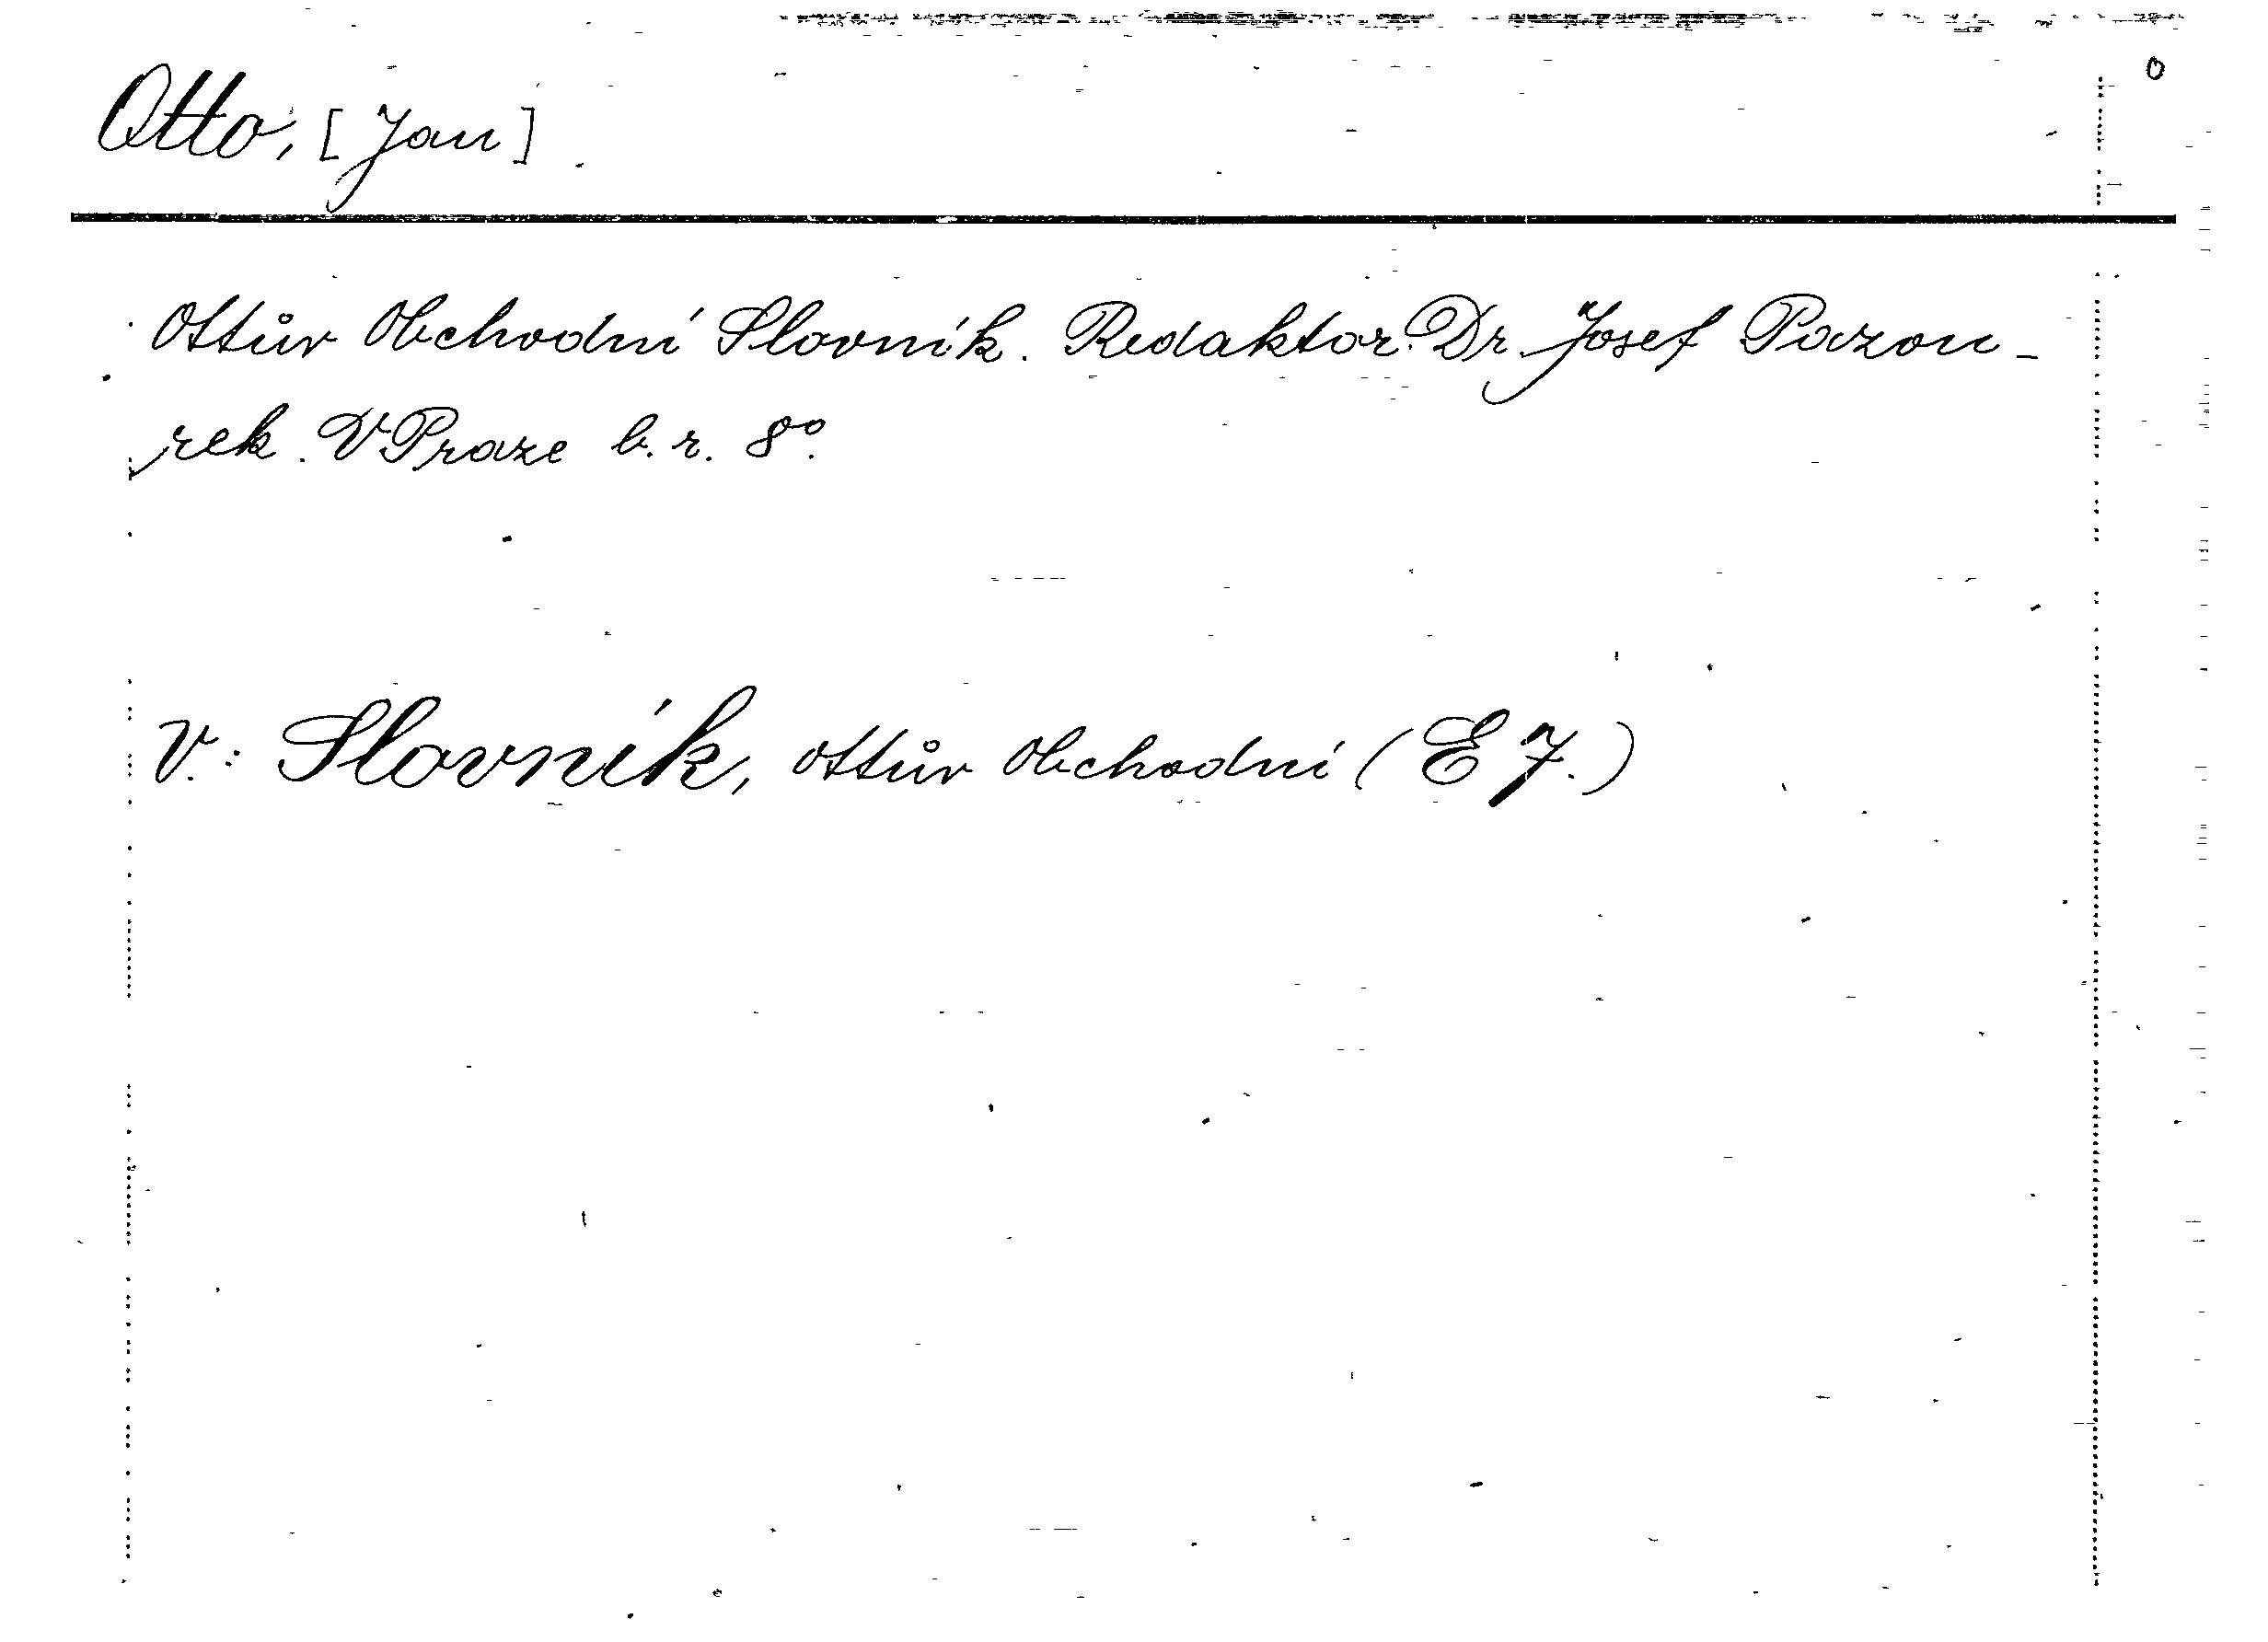 O
Otto, [Jan]
Ottův Obchodní Slovník. Redaktor Dr. Josef Pazou-
rek. V Praze b. r. 8°.
V.: Slovník, Ottův Obchodní (E 7.)